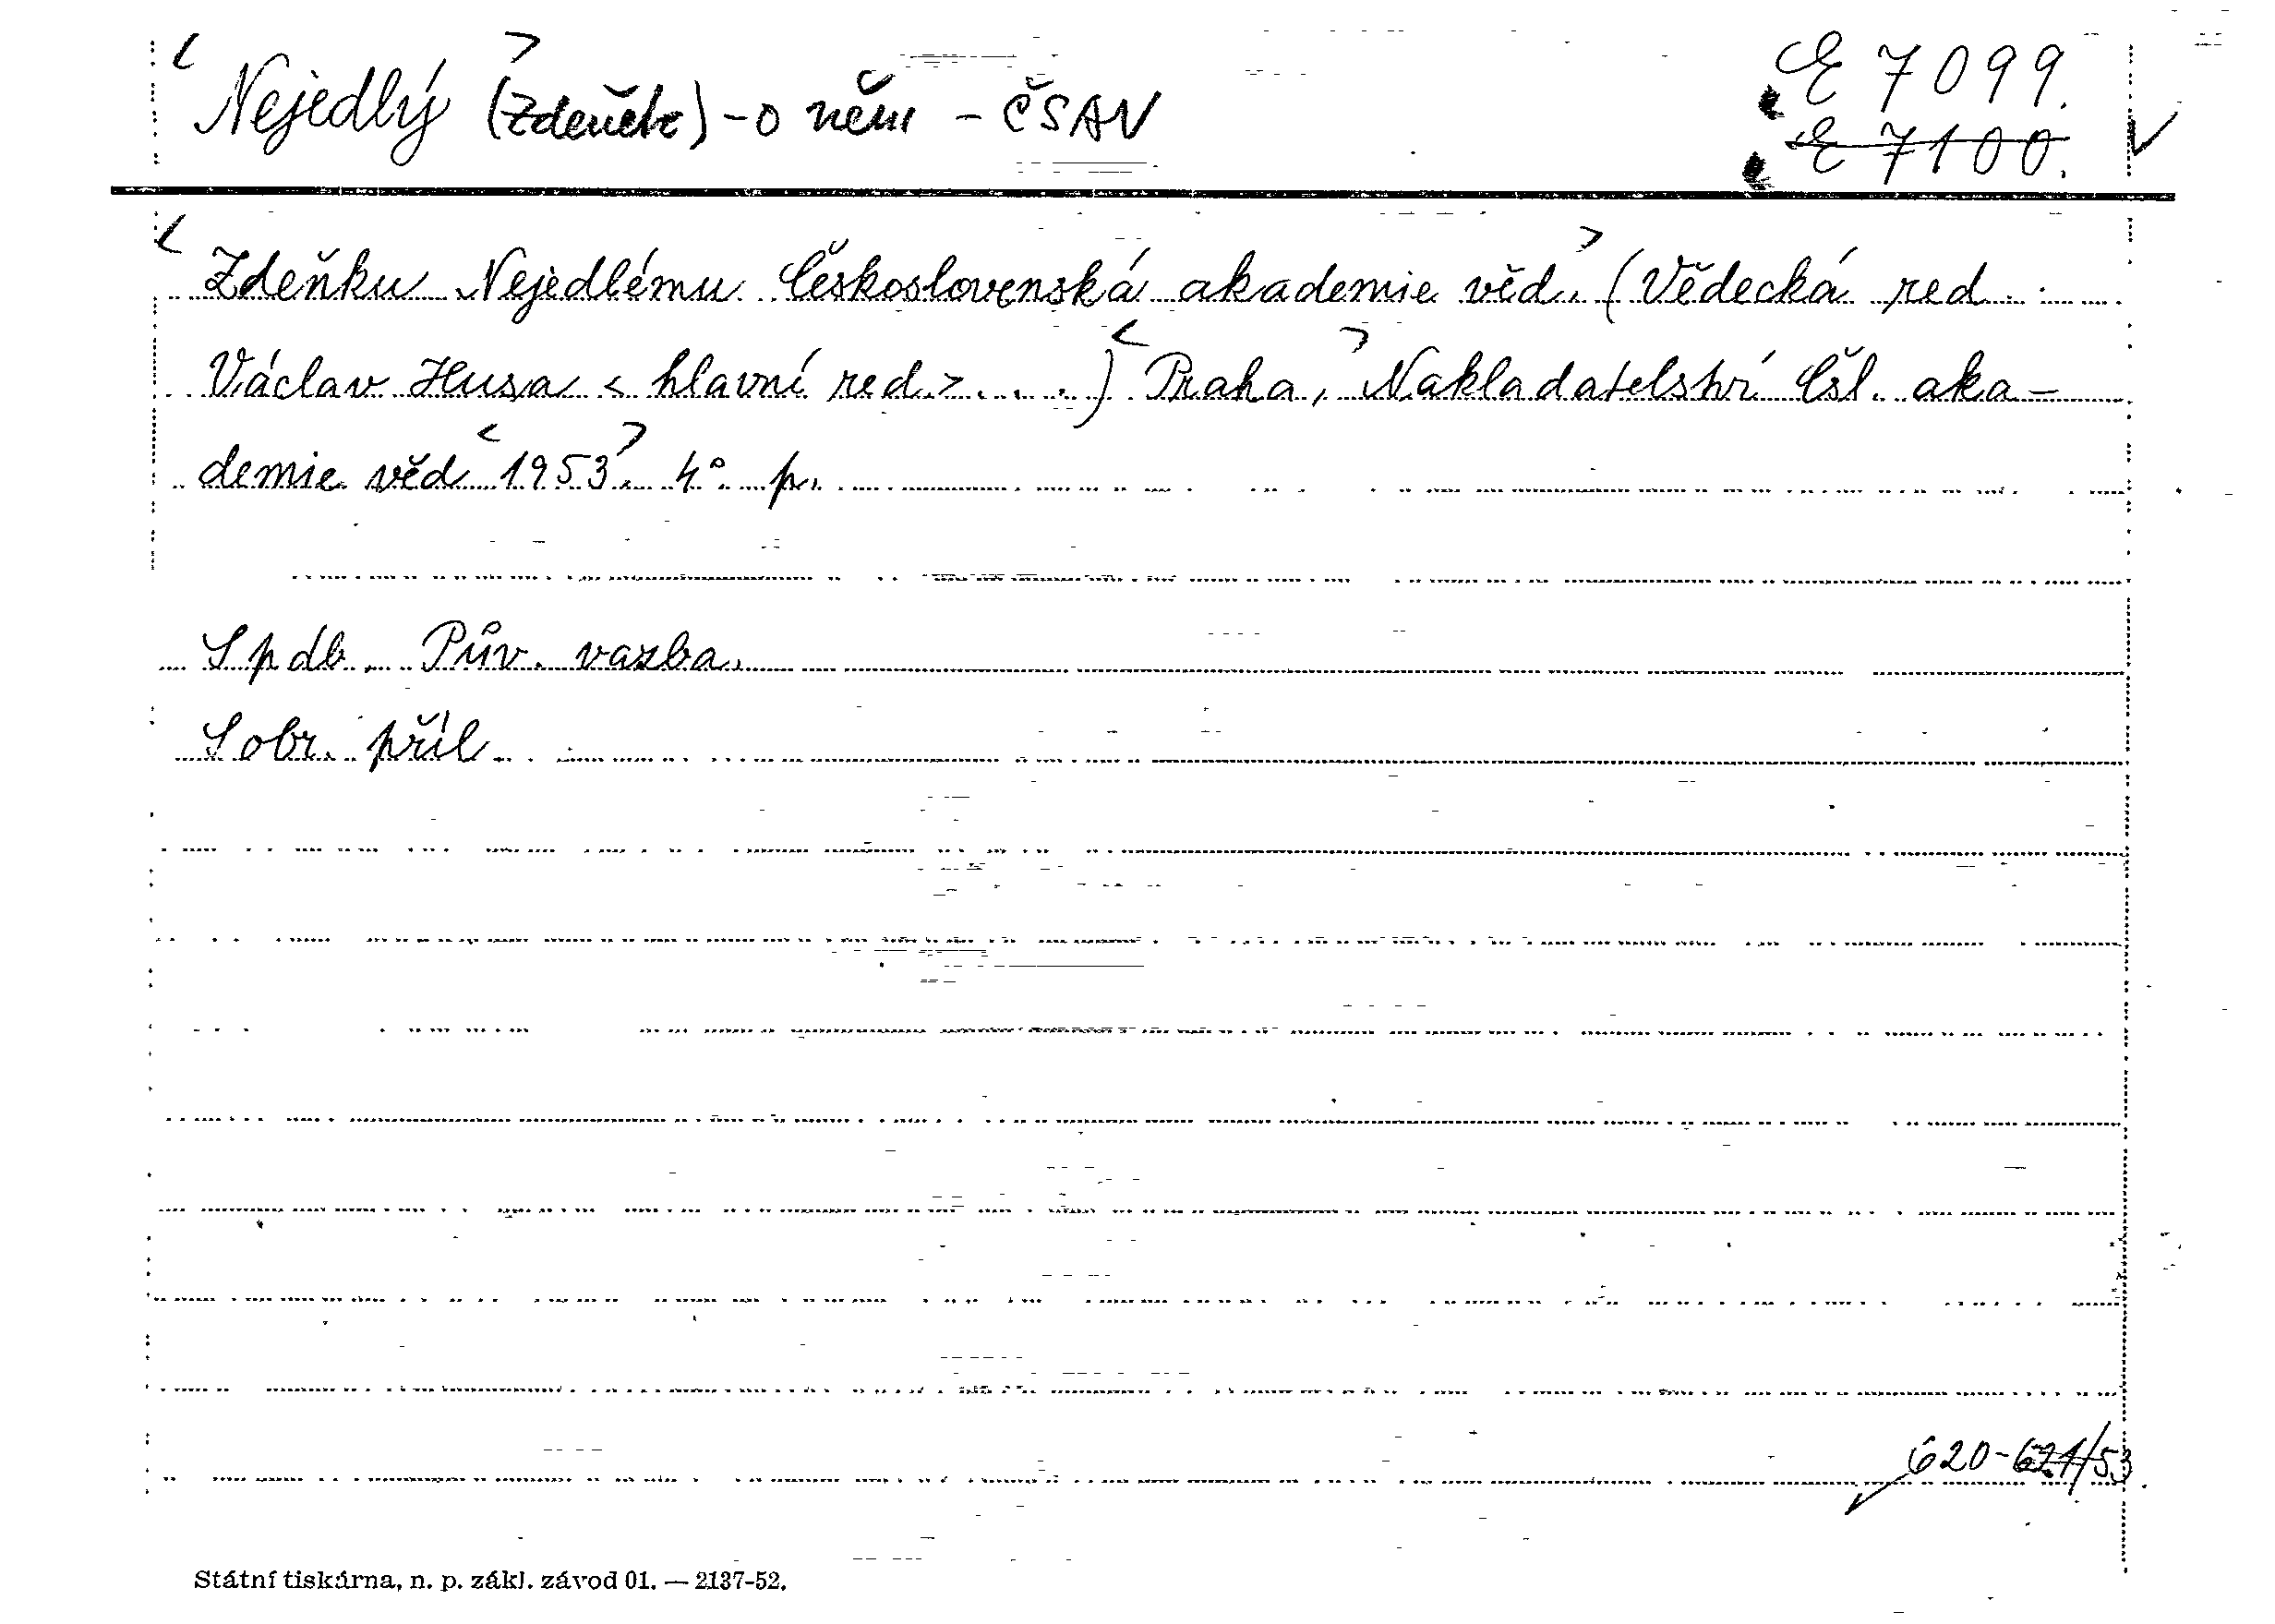 <Nejedlý> (Zdeněk) - o něm - ČSAV
E 7099.
E 7100.
<Zdeňku Nejedlému Československá akademie věd.> (Vědecká red.
Václav Husa <hlavní red.> ...) <Praha,> Nakladatelství Čsl. aka-
demie věd <1953>. 4° p.
S pdb. Pův. vazba.
S obr. příl.
620-621/53
Státní tiskárna, n. p. zákl. závod 01. — 2137-52.